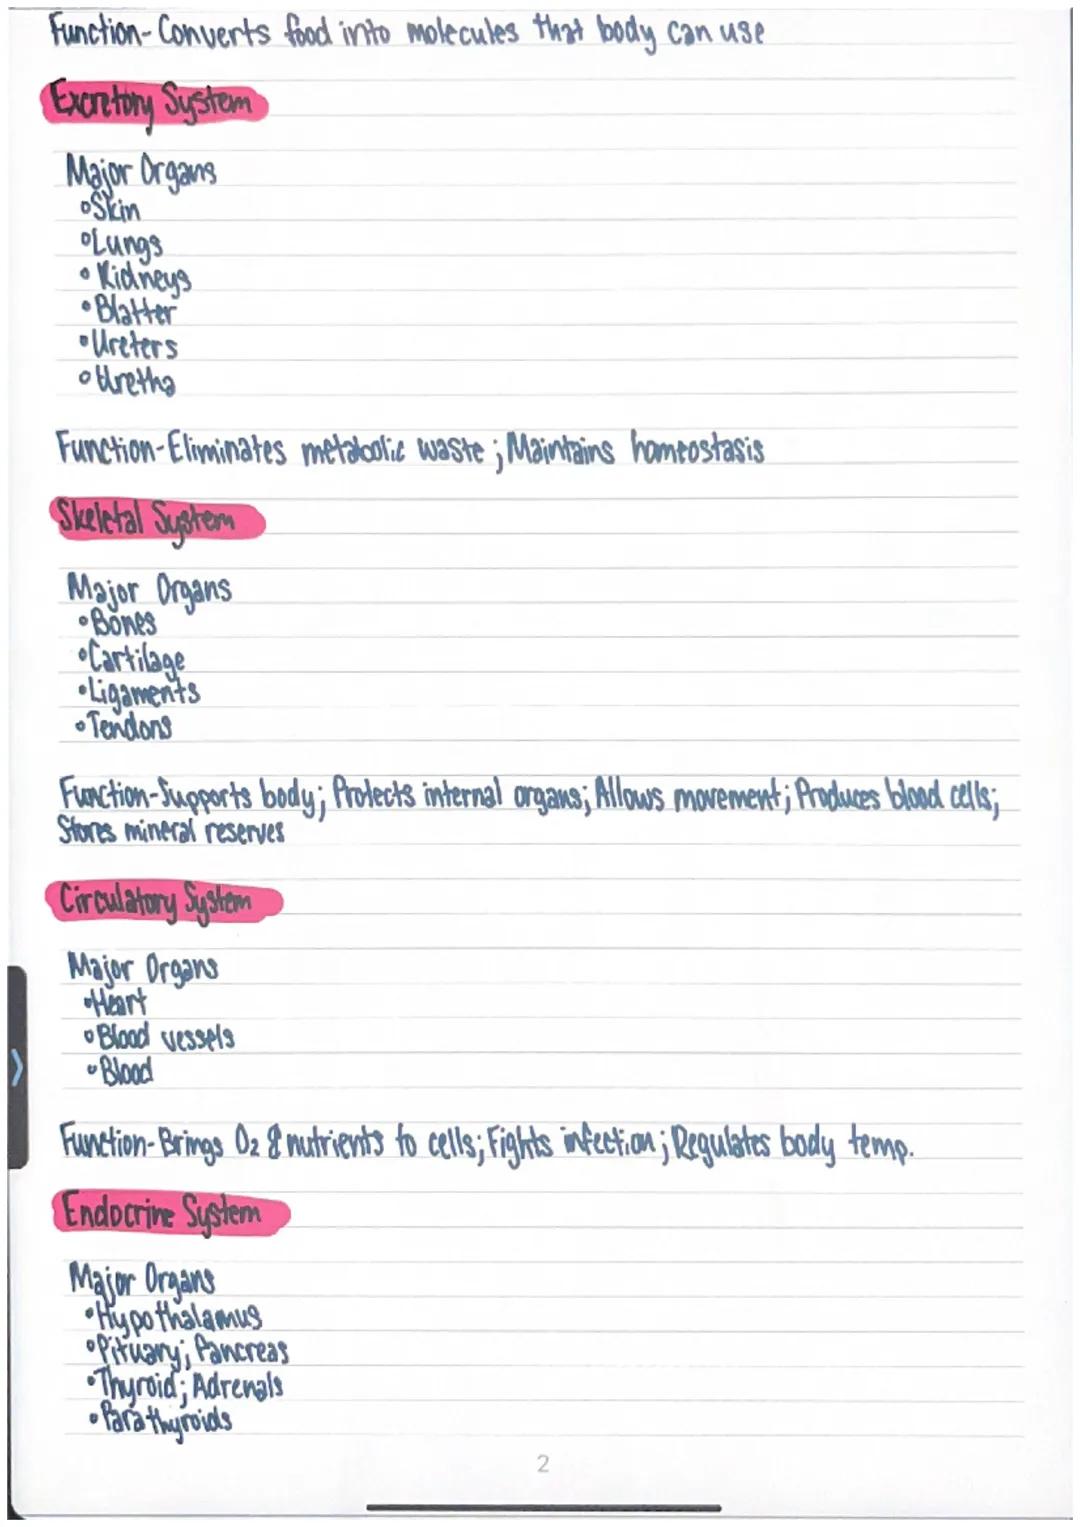 Function-Converts food into molecules that body can use
Excretory System
Major Organs
•Skin
•Lungs
•Kidneys
•Blatter
•Ureters
•Uretha
Function-Eliminates metabolic waste; Maintains homeostasis
Skeletal System
Major Organs
•Bones
•Cartilage
•Ligaments
•Tendons
Function-Supports body; Protects internal organs; Allows movement; Produces blood cells;
Stores mineral reserves
Circulatory System
Major Organs
•Heart
•Blood vessels
•Blood
Function-Brings O₂ & nutrients to cells; Fights infection; Regulates body temp.
Endocrine System
Major Organs
•Hypothalamus
•Pituary; Pancreas
•Thyroid; Adrenals
•Parathyroids
2